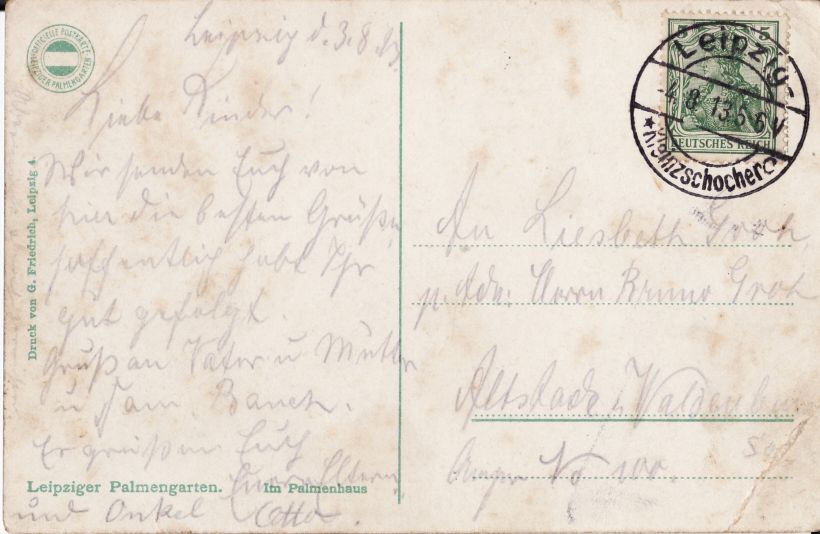 Leipzig d. 3.8.13
Liebe Kinder!
Wir senden Euch von
hier die besten Grüße,
hoffentlich habt Ihr
gut gefolgt.
Gruß an Vater u Mutter
u Fam.
Es grüßen Euch
Eure Eltern
und Onkel Otto
OFFIZIELLE POSTKARTE
LEIPZIGER PALMENGARTEN
Druck von G. Friedrich, Leipzig 4.
Leipziger Palmengarten. Im Palmenhaus
5
DEUTSCHES REICH
Leipzig-
4.8.13.5-6 V
* Kleinzschocher
An Liesbeth Groh,
p. Adr. Herrn Bruno Groh
Altstadt
No 100.